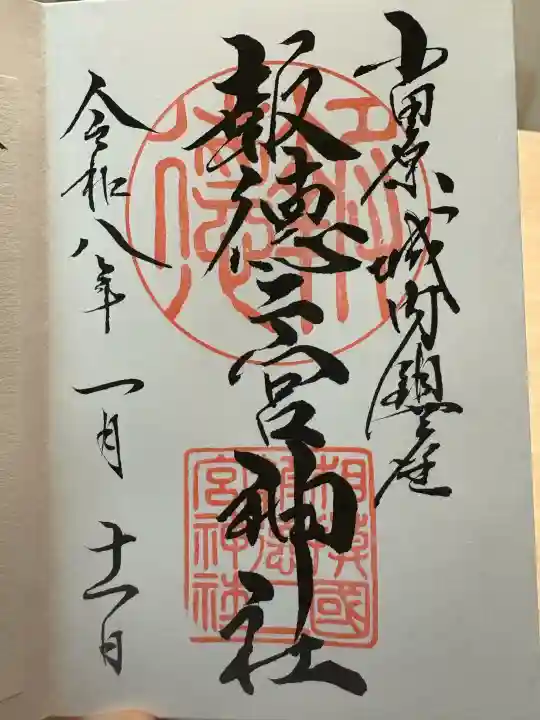 小田原城内鎮座
報徳二宮神社
令和八年 一月 十一日
相模國
報徳二
宮神社